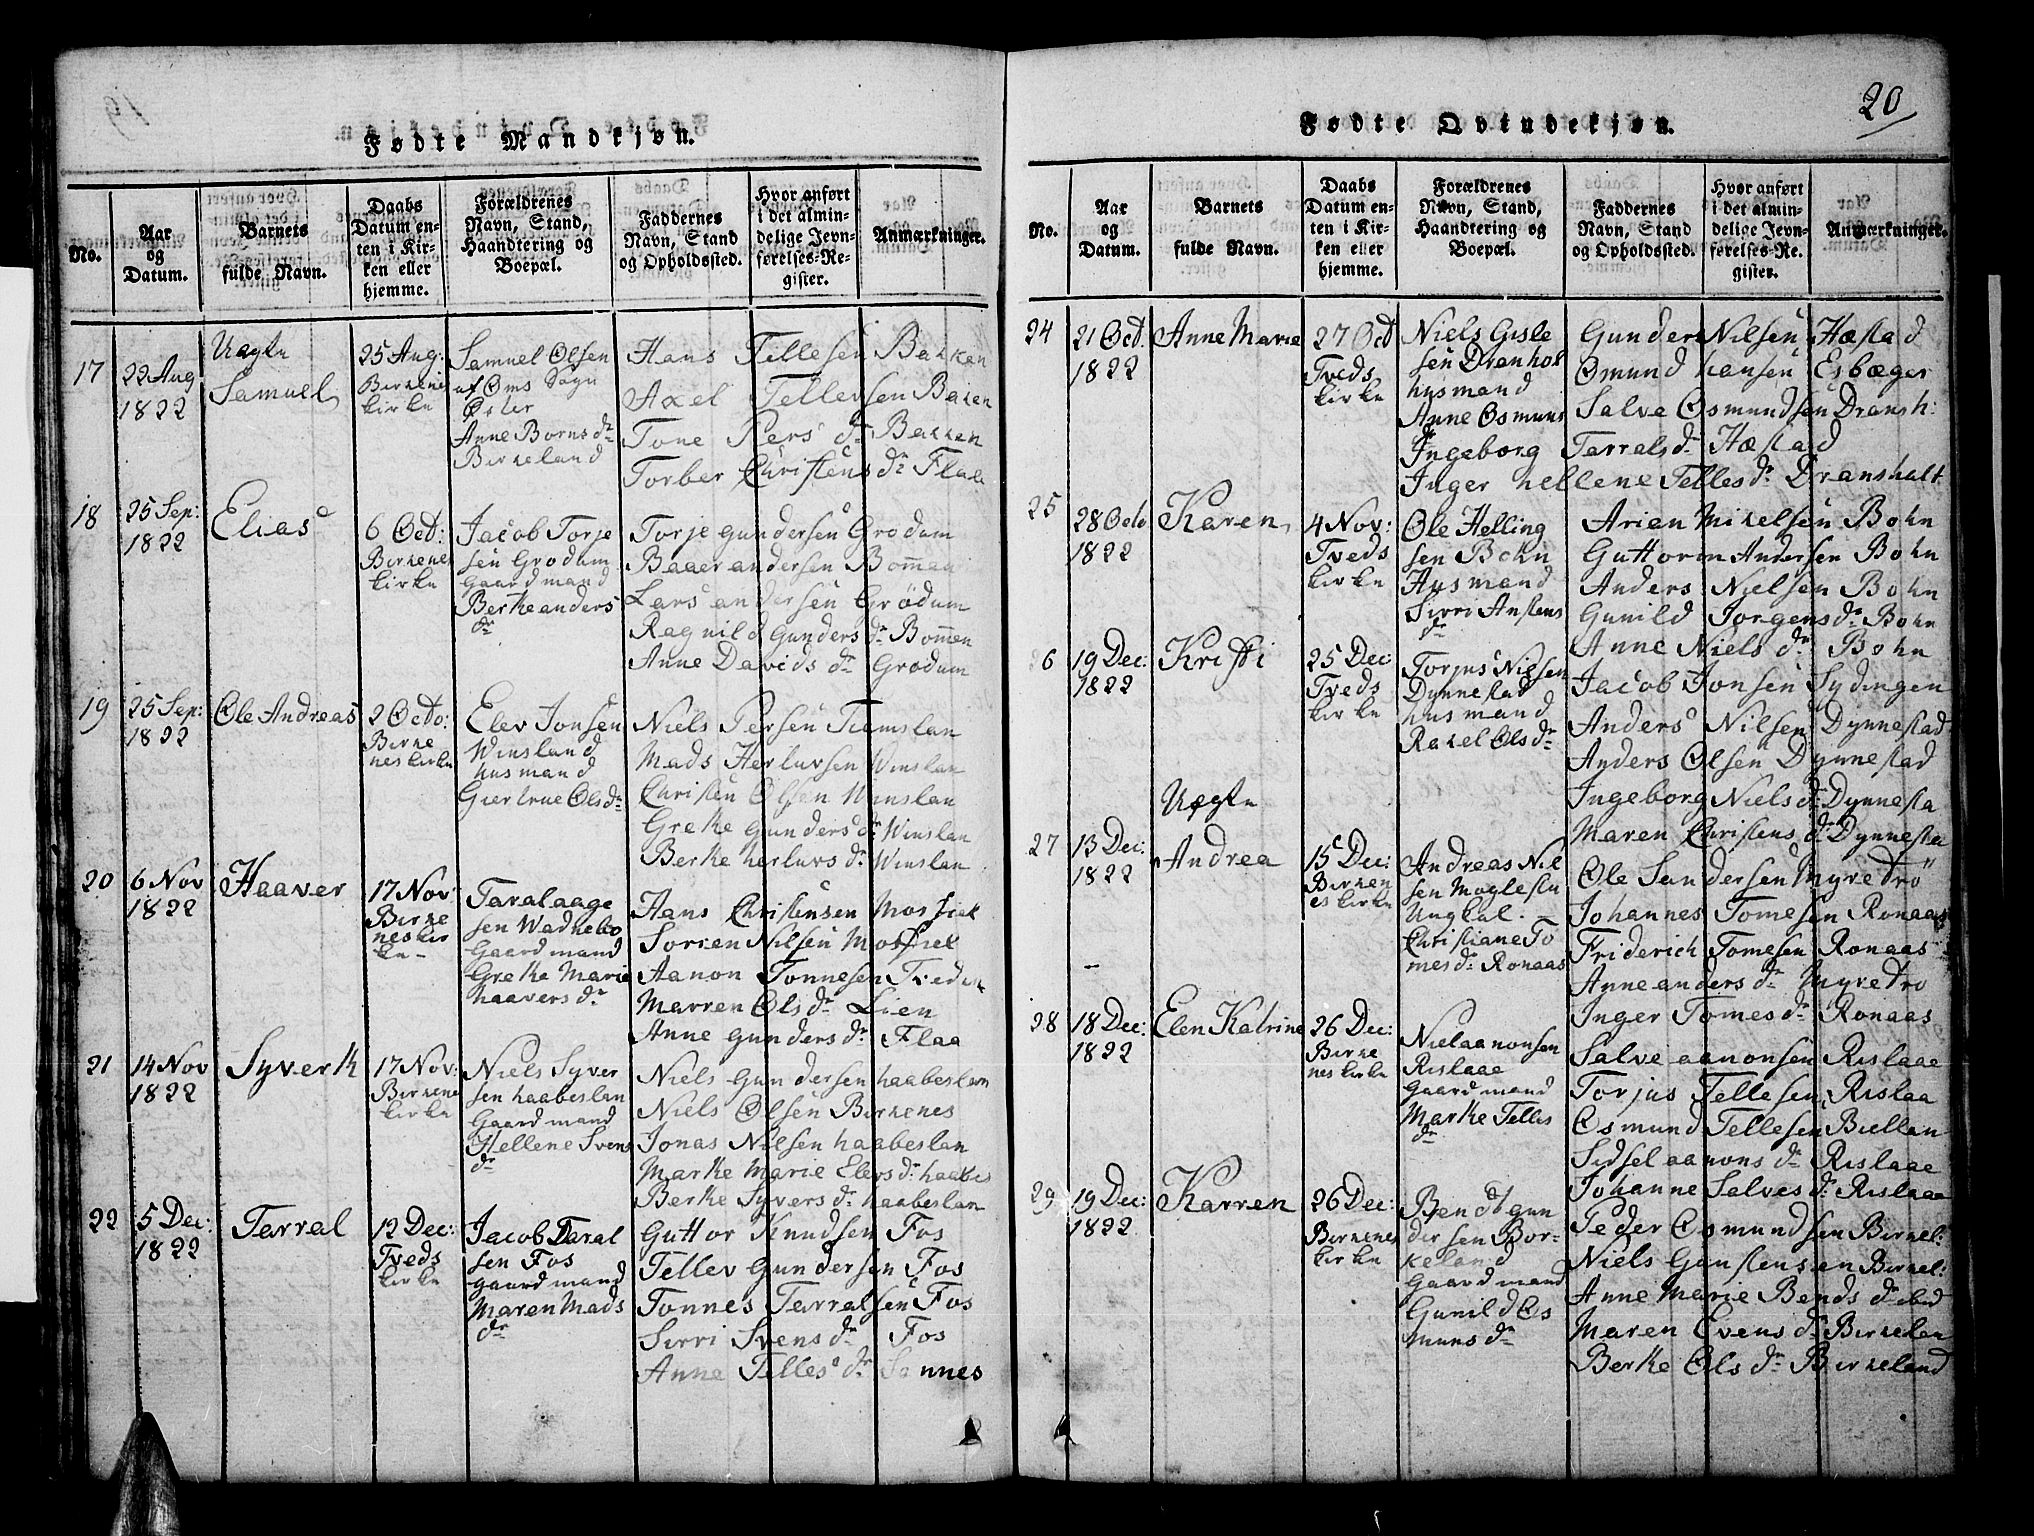 20
Fødte Mandkjøn.
No.
Aar
og
Datum.
Barnets
fulde Navn.
Daabs
Datum en-
ten i Kir-
ken eller
hjemme.
Forældrenes
Navn, Stand,
Haandtering og
Boepæl.
Faddernes
Navn, Stand
og Opholdssted.
Hvor anført
i det almin-
delige Jevn-
førelses-Re-
gister.
Anmærkninger.
17
22 Aug
1822
Uægte
Samuel
25 Aug:
Birkenes
kirke
Samuel Olsen
af Oms Sogn
Anne Borns dr
Birkeland
Hans Tellesen Bakken
Axel Tellefsen Baken
Tone Pers dr Bakken
Torber Christens dr Flaa
18
25 Sep:
1822
Elias
6 Oct:
Birkenes
kirke
Jacob Torje
sen Grodum
Gaardmand
Berke anders
dr
Torje gundersen Grodum
Baaer andersen Bomen
Lars andersen Grødum
Ragnild Gunders dr Bommen
Anne Davids dr Grodum
19
25 Sep:
1822
Ole Andreas
2 Octo:
Birke
neskirke
Elev Jonsen
Winsland
husmand
Giertrue Ols dr
Niels Persen Tiemslan
Mads Herluvsen Winslan
Christen Olsen Winslan
Grethe gunders dr Winslan
Berke herluvs dr Winslan
20
6 Nov
1822
Haaver
17 Nov:
Birke
neskir
ke
Taralaage
sen Wadnebo
Gaardmand
Grethe Marie
haavers dr
Hans Christensen Mosfiel
Sorien Nilsen Mosfiel
Aanon Tonnesen
Marren Ols dr Lien
Anne gunders dr Flaa
21
14 Nov
1822
Syvert
17 Nov:
Birkenes
kirke
Niels Syver
sen haabeslan
Gaardmand
Hellene Svens
dr
Niels Gundersen haabeslan
Niels Olsen Birkenes
Jonas Nilsen haabeslan
Marthe Marie Elevs dr haabes
Berke Syvers dr haabeslan
22
5 Dec:
1822
Tarral
12 Dec:
Tveds
kirke
Jacob Taral
sen Fos
gaardmand
Maren Mads
dr
Guttor Knudsen Fos
Tellev Gundersen Fos
Tonnes Tarralsen Fos
Sirri Svens dr Fos
Anne Telles dr Sannes
Fødte Qvindekjøn.
No.
Aar
og
Datum.
Barnets
fulde Navn.
Daabs
Datum en-
ten i Kir-
ken eller
hjemme.
Forældrenes
Navn, Stand,
Haandtering og
Boepæl.
Faddernes
Navn, Stand
og Opholdssted.
Hvor anført
i det almin-
delige Jevn-
førelses-Re-
gister.
Anmærkninger.
24
21 Oct
1822
Anne Marie
27 Oct
Tveds
kirke
Niels Gisle
sen Dranhol
husmand
Anne Osmuns
dr
Gunder Nilsen Hæstad
Osmund hansen Esbæger
Salve Osmundsen Dransh:
Ingeborg Tarrals dr Hæstad
Inger hellene Telles dr Dranshalt
25
28 Octo
1822
Karen
4 Nov:
Tveds
kirke
Ole Helling
sen Bohn
Husmand
Sirri Anstens
dr
Arien Mikelsen Bohn
Guttorm Andersen Bohn
Anders Nielsen Bohn
Gunild Jorgens dr Bohn
Anne Niels dr Bohn
26
19 Dec:
1822
Kristi
25 Dec
Tveds
kirke
Torjus Nilsen
Dynnestad
husmand
Rakel Ols dr
Jacob Jonsen Sydingen
Anders Nilsen Dynnestad
Anders Olsen Dynnestad
Ingeborg Niels dr Dynnesta
Maren Christens dr Dynnesta
27
13 Dec:
1822
Uægte
Andrea
15 Dec:
Birken
eskirke
Andreas Nil
sen Moglestu
Ungkal.
Christiane To
mes dr Ronaas
Ole Sandersen Myredro
Johannes Tomesen Ronaas
Friderich Tomesen Ronaas
Anne anders dr Myredro
Inger Tomes dr Ronaas
28
18 Dec:
1822
Elen Katrine
26 Dec:
Birke
neskirke
Niel aanonsen
Rislaae
gaardmand
Marthe Telles
dr
Salve aanonsen Rislaae
Torjus Tellesen Rislaa
Osmund Tellesen Biellan
Sidsel aanons dr Rislaae
Johanne Salves dr Rislaaa
29
19 Dec:
1822
Karren
26 Dec:
Birkenes
kirke
Bendt gun
dersen Bor-
keland
Gaardmand
Gunild Os
muns dr
Peder Osmundsen Birkel:
Niels Gunstensen Birkel:
Anne Marie Bends dr ibid
Maren Evens dr Birkelan
Berke Ols dr Birkeland